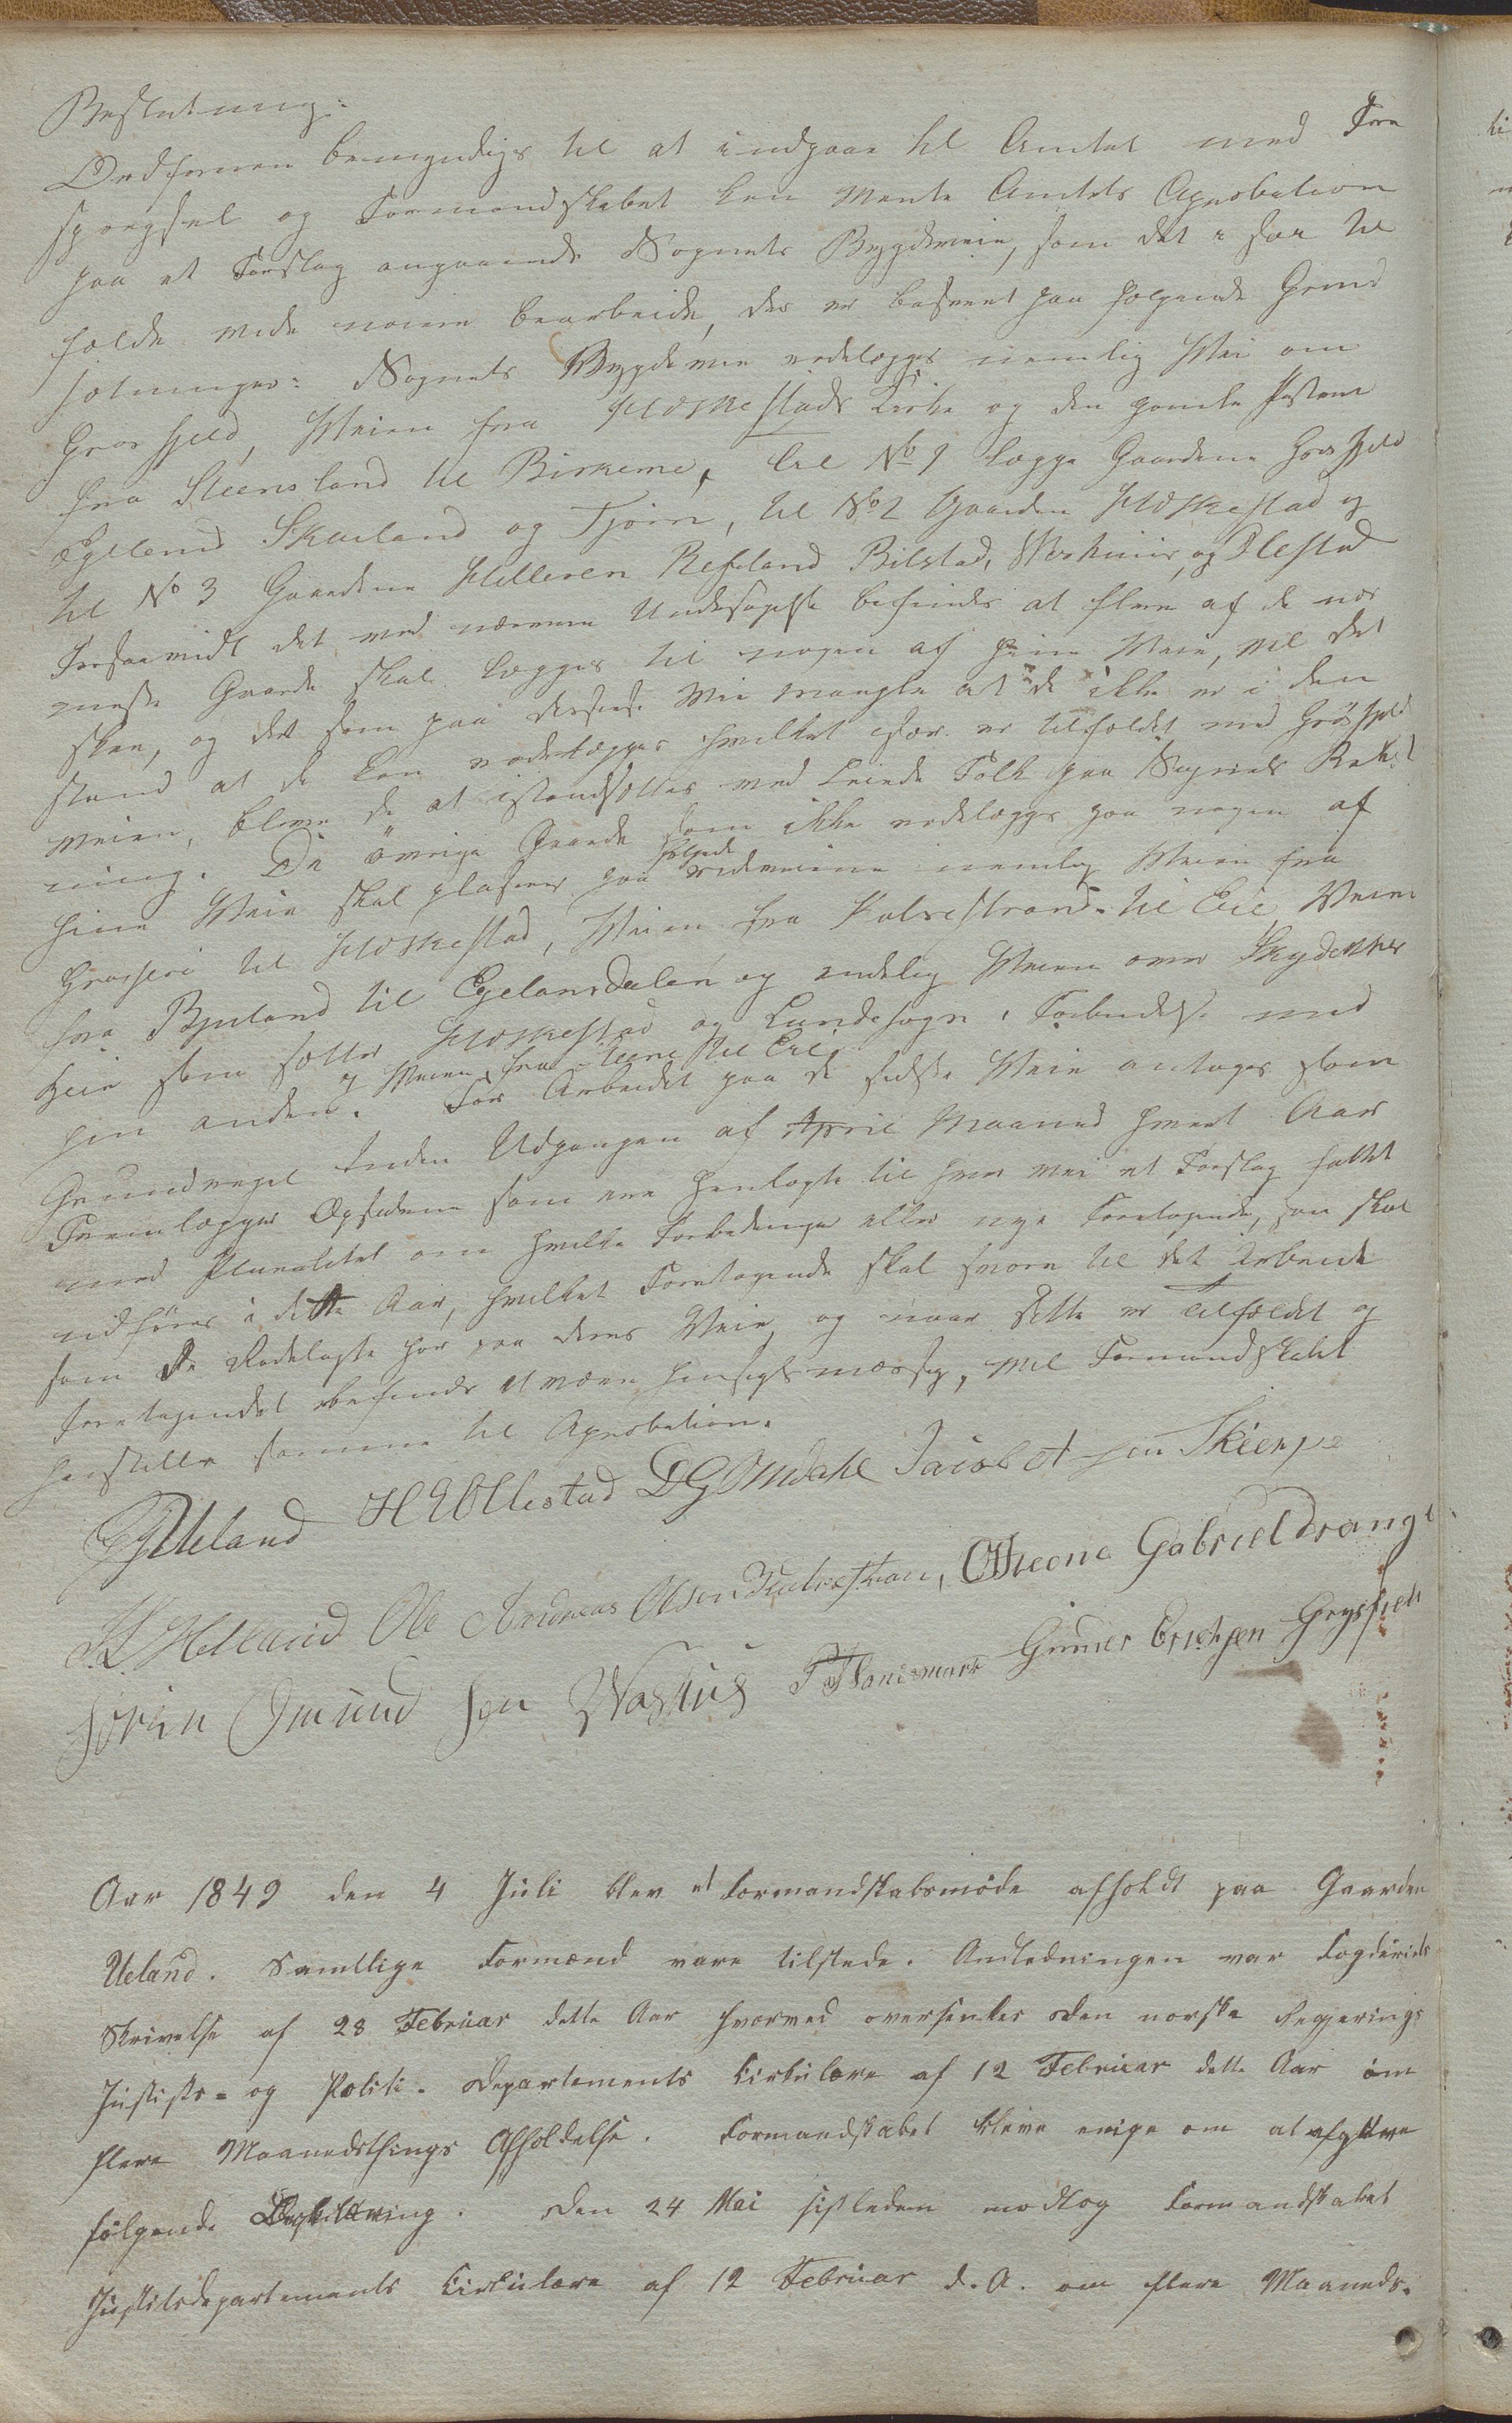 Beslutning:
Ordføreren bemyndiges til at indgaae til Amtet med Fore
spørgsel og Formandskabet kan vente Amtets Aprobation
paa et Forslag angaaende Sognets Bygdeveie, som det i saa til
fælde vide nøiere bearbeide, der er baseret paa følgende Grund
sætninger: Sognets Bygdeveie rodelægges nemlig Vei om
Grøsfjeld, Veien fra Heskestads Kirke og den gamle Postvei
fra Steensland til Birkemo, til No 1 lægge Gaardene Grøsfjeld
Egelland Skaaland og Tjørn, til No 2 Gaarden Heskestad og
til No 3 Gaardene Helleren Refsland Bilstad, og Ollestad
Forsaavidt det ved nærmere Undersøgelse befindes at flere af de nær
meste Gaarde skal lægges til nogen af hine Veie, vil det
skee, og det som paa disse Veie mangle at de ikke er i den
stand at de kan rodelægges hvilket især er tilfældet med Grøsfjeld
veien, bliver de at istandsættes med leiede Folk paa Sognets Reg
ning. De øvrige Gaarde som ikke rodelægges paa nogen af
hine Veie skal plaseres paa følgende Rideveiene nemlig Veien fra
til Heskestad, Veien fra til Eie Veien
fra Bjuland til Egelandsdalen og endelig Veien over
Heie som sætter Heskestad og Lundesogn i Forbindelse med
hin anden. og Veien fra Steene til Eie For Arbeidet paa de sidste Veie antages som
Grundregel Inden Udgangen af April Maaned hvert Aar
Fremlægger Opsidderne som ere henlagte til hver vei et Forslag fattet
med Pluralitet om hvilke Forbedringer eller nye Foretagende, som skal
udføres i dette Aar, hvilket Foretagende skal svare til det Arbeide
som de Rodelagte har paa deres Veie, og naar dette er Tilfældet og
Foretagendet befindes at være hensigtsmæssig, vil Formandskabet
henstille samme til Aprobation.
Ueland H E Ollestad D G Omdahl Jacob et sen Skierpe
S. L. Helland Ole Andreas Olsen O Theone Gabriel Drange
Sørin Omund sen T Hanismark Gunner Erichsen Grøsfield
Aar 1849 den 4 Juli blev et Formandskabsmøde afholdt paa Gaarden
Ueland. Samtlige Formænd vare tilstede. Anledningen var Fogderiets
Skrivelse af 28 Februar dette Aar hvorved oversendes den norske Regjerings
Justits- og Politi-Departements Cirkulære af 12 Februar dette Aar om
flere Maanedsthings Afholdelse. Formandskabet bleve enige om at afgive
følgende Den 24 Mai sistleden modtog Formandskabet
Justitsdepartements Cirkulære af 12 Februar d. A. om flere Maaneds-